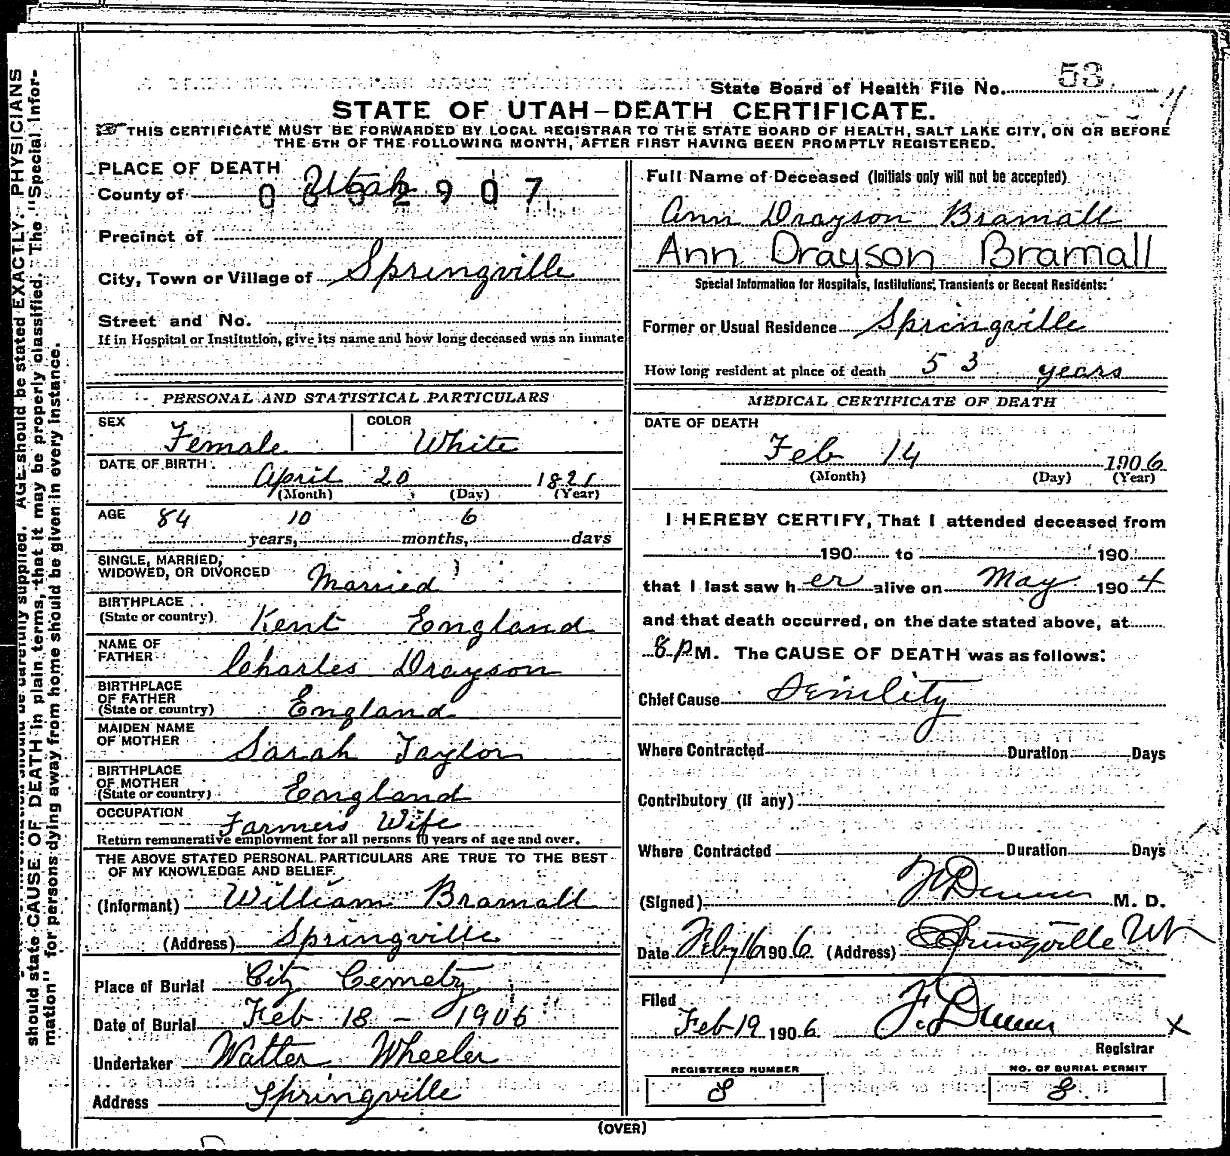 State Board of Health File No. 53
STATE OF UTAH—DEATH CERTIFICATE.
THIS CERTIFICATE MUST BE FORWARDED BY LOCAL REGISTRAR TO THE STATE BOARD OF HEALTH, SALT LAKE CITY, ON OR BEFORE
THE 5TH OF THE FOLLOWING MONTH, AFTER FIRST HAVING BEEN PROMPTLY REGISTERED.
PLACE OF DEATH
County of Utah
Precinct of
City, Town or Village of Springville
Street and No.
If in Hospital or Institution, give its name and how long deceased was an inmate
PERSONAL AND STATISTICAL PARTICULARS
SEX Female COLOR White
DATE OF BIRTH April 20 1821
(Month) (Day) (Year)
AGE 84 years, 10 months, 6 days
SINGLE, MARRIED,
WIDOWED, OR DIVORCED Married
BIRTHPLACE
(State or country) Kent England
NAME OF
FATHER Charles Drayson
BIRTHPLACE
OF FATHER
(State or country) England
MAIDEN NAME
OF MOTHER Sarah Taylor
BIRTHPLACE
OF MOTHER
(State or country) England
OCCUPATION Farmers Wife
Return remunerative employment for all persons 10 years of age and over.
THE ABOVE STATED PERSONAL PARTICULARS ARE TRUE TO THE BEST
OF MY KNOWLEDGE AND BELIEF.
(Informant) William Bramall
(Address) Springville
Place of Burial City Cemetry
Date of Burial Feb 18 - 1906
Undertaker Walter Wheeler
Address Springville
Full Name of Deceased (Initials only will not be accepted)
Ann Drayson Bramall
Ann Drayson Bramall
Special Information for Hospitals, Institutions, Transients or Recent Residents:
Former or Usual Residence Springville
How long resident at place of death 53 years
MEDICAL CERTIFICATE OF DEATH
DATE OF DEATH
Feb 14 1906
(Month) (Day) (Year)
I HEREBY CERTIFY, That I attended deceased from
190 to 190
that I last saw her alive on May 1904
and that death occurred, on the date stated above, at
8 P M. The CAUSE OF DEATH was as follows:
Chief Cause Senility
Where Contracted Duration Days
Contributory (if any)
Where Contracted Duration Days
(Signed) F Dunn M. D.
Date Feby 16 1906 (Address) Springville Ut
Filed
Feb 19 1906 F. Dunn
Registrar
REGISTERED NUMBER
8
NO. OF BURIAL PERMIT
8
(OVER)
AGE should be stated EXACTLY. PHYSICIANS
should state CAUSE OF DEATH in plain terms, that it may be properly classified. The "Special Infor-
mation" for persons dying away from home should be given in every instance.